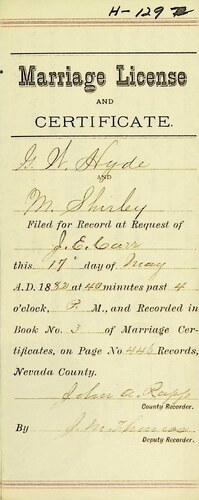 H-129
Marriage License
AND
CERTIFICATE.
G. W. Hyde
AND
M. Shurley
Filed for Record at Request of
J. E. Carr
this 17" day of May
A.D. 1882 at 40 minutes past 4
o'clock, P. M., and Recorded in
Book No. 3 of Marriage Cer-
tificates, on Page No. 446 Records,
Nevada County.
John A. Rapp
County Recorder.
By J. M. Thomas
Deputy Recorder.